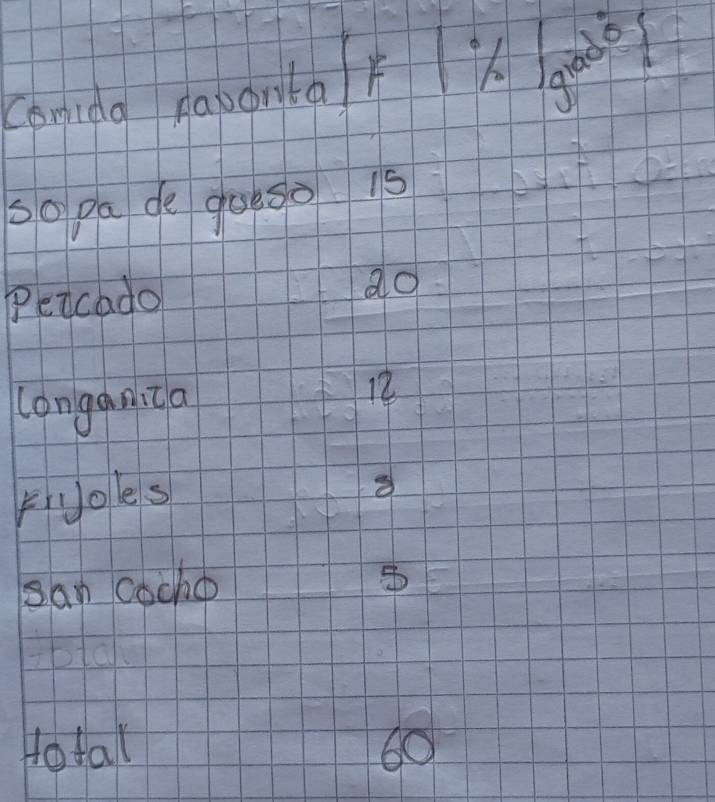 Comida favorita | F | % | grados
sopa de queso 15
Pezcado 20
Longaniza 12
Frijoles 8
san cocho 5
total
total 60